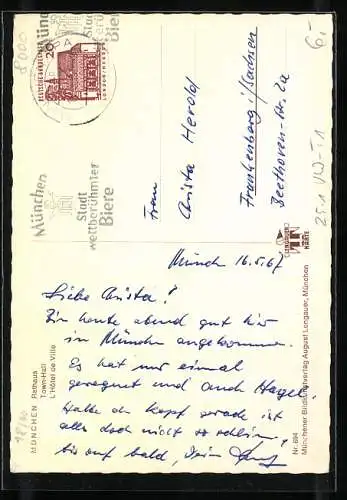 8000
6,-
München
Stadt
weltberühmter
Biere
20
DEUTSCHE BUNDESPOST
München
Stadt
weltberühmter
Biere
Frau
Christa Herold
Frankenberg i/Sachsen
Beethoven-Str. 2a
München 16.5.67
Liebe Christa!
Bin heute abend gut hier
in München angekommen.
Es hat nur einmal
geregnet und auch Hagel.
Halte den Kopf gerade ist
alles doch nicht so schlimm,
bis auf bald, Dein
MÜNCHEN Rathaus
Town-Hall
L'Hôtel de Ville
LENGAUER
KARTE
Nr. 694 Münchener Bildkunstverlag August Lengauer, München